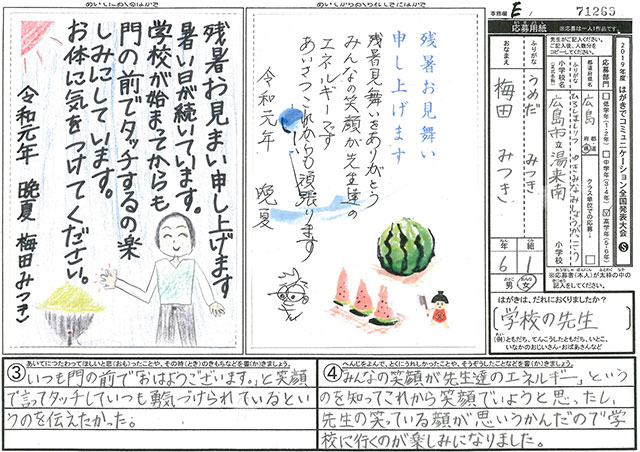 あいてにおくるはがき
残暑お見まい申し上げます
暑い日が続いています。
学校が始まってからも
門の前でタッチするの楽
しみにしています。
お体に気をつけてください。
令和元年 晩夏 梅田みつき
残暑お見舞い
申し上げます
残暑見舞いをありがとう
みんなの笑顔が先生達の
エネルギーです
あいさつこれからも頑張ります
令和元年 晩夏
事務欄 E
71269
応募用紙
※応募は一人1作品です。
先生がご記入ください。
ご記入後、人数分を
コピーしてください。
2019年度 はがきでコミュニケーション全国発表大会 S
応募部門
低学年(1・2年)
中学年(3・4年)
高学年(5・6年)
都道府県名
広島
都道府県
クラス単位での応募
ふりがな
小学校名
広島市立湯来南
小学校
ふりがな
うめだ みつき
おなまえ
梅田 みつき
6年
1組
男・女
※応募者(本人)が太枠の中の
記入をしてください。
はがきは、だれにおくりましたか?
学校の先生
(例)ともだち、てんこうしたともだち、いとこ、
いなかのおじいさん・おばあさんなど
③ あいてにつたわってほしいと思(おも)ったことや、その時(とき)のきもちなどを書(か)きましょう。
いつも門の前で「おはようございます。」と笑顔
で言ってタッチしていつも勇気づけられているとい
うのを伝えたかった。
④ へんじをよんで、とくにうれしかったことや、そうぞうしたことなどを書(か)きましょう。
「みんなの笑顔が先生達のエネルギー」という
のを知ってこれから笑顔でいようと思ったし、
先生の笑っている顔が思いうかんだので学
校に行くのが楽しみになりました。